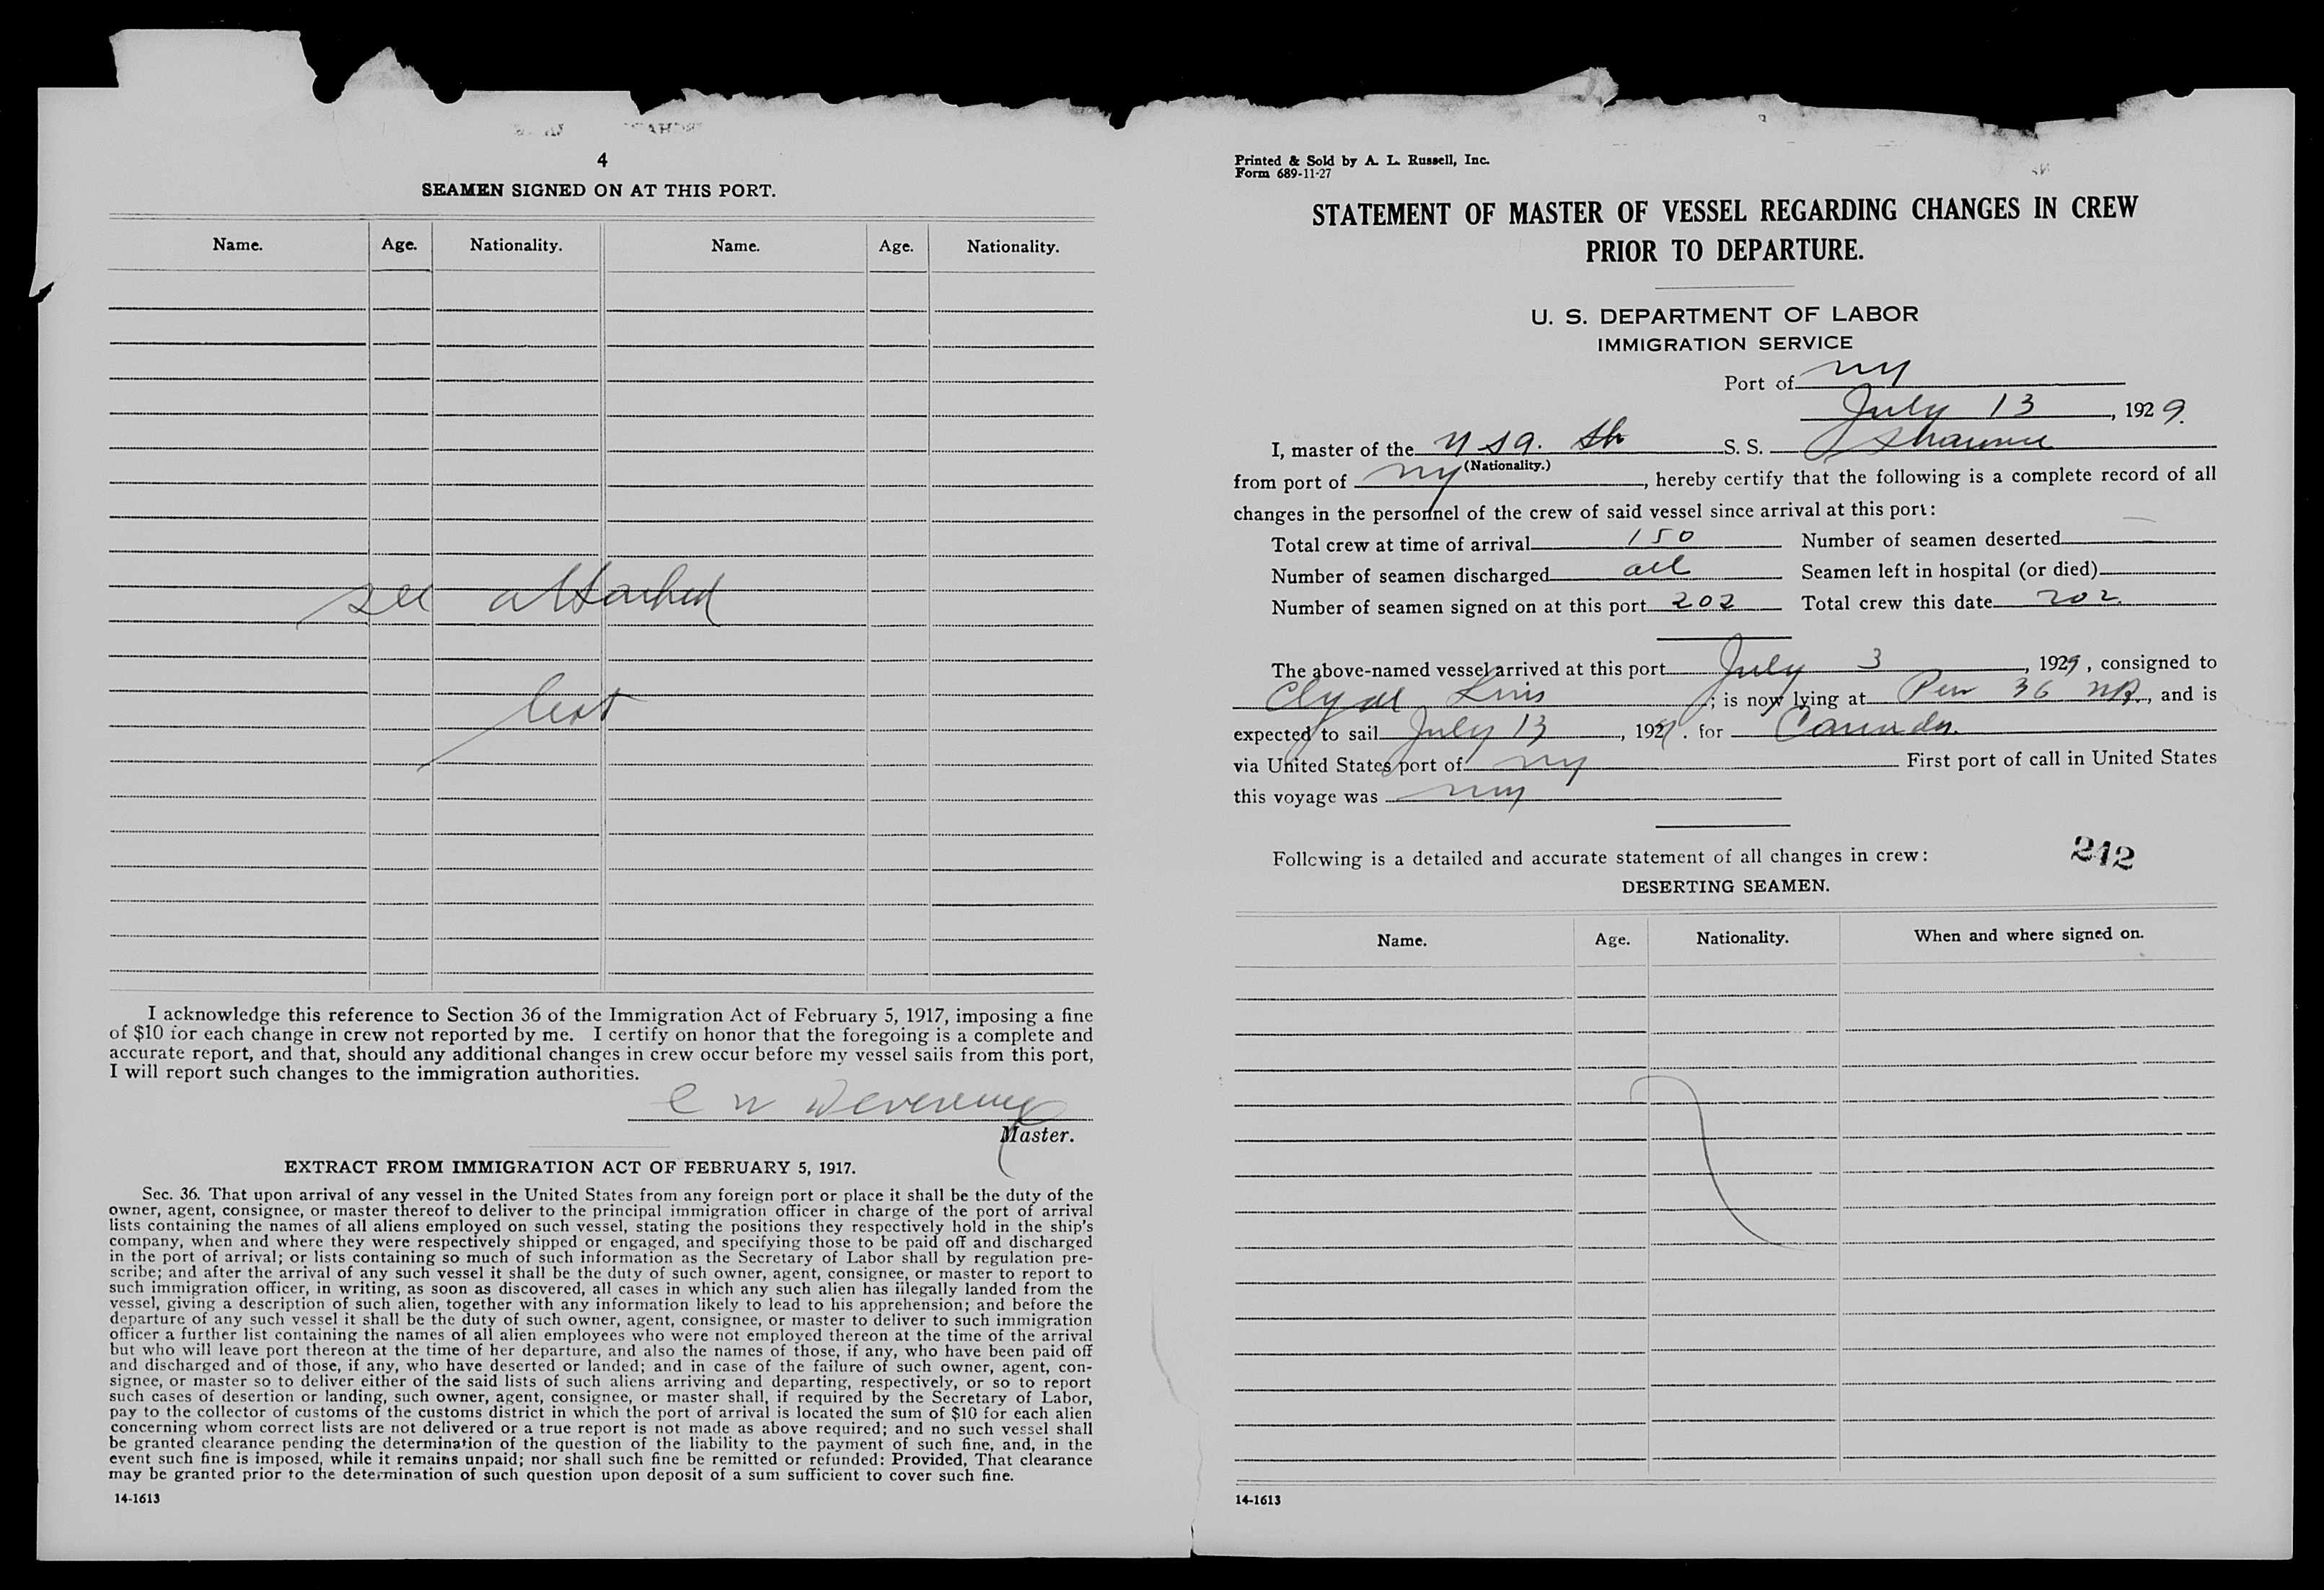 4
SEAMEN SIGNED ON AT THIS PORT.
Name. Age. Nationality. Name. Age. Nationality.
see attached
list
I acknowledge this reference to Section 36 of the Immigration Act of February 5, 1917, imposing a fine
of $10 for each change in crew not reported by me. I certify on honor that the foregoing is a complete and
accurate report, and that, should any additional changes in crew occur before my vessel sails from this port,
I will report such changes to the immigration authorities.
C W
Master.
EXTRACT FROM IMMIGRATION ACT OF FEBRUARY 5, 1917.
Sec. 36. That upon arrival of any vessel in the United States from any foreign port or place it shall be the duty of the
owner, agent, consignee, or master thereof to deliver to the principal immigration officer in charge of the port of arrival
lists containing the names of all aliens employed on such vessel, stating the positions they respectively hold in the ship's
company, when and where they were respectively shipped or engaged, and specifying those to be paid off and discharged
in the port of arrival; or lists containing so much of such information as the Secretary of Labor shall by regulation pre-
scribe; and after the arrival of any such vessel it shall be the duty of such owner, agent, consignee, or master to report to
such immigration officer, in writing, as soon as discovered, all cases in which any such alien has illegally landed from the
vessel, giving a description of such alien, together with any information likely to lead to his apprehension; and before the
departure of any such vessel it shall be the duty of such owner, agent, consignee, or master to deliver to such immigration
officer a further list containing the names of all alien employees who were not employed thereon at the time of the arrival
but who will leave port thereon at the time of her departure, and also the names of those, if any, who have been paid off
and discharged and of those, if any, who have deserted or landed; and in case of the failure of such owner, agent, con-
signee, or master so to deliver either of the said lists of such aliens arriving and departing, respectively, or so to report
such cases of desertion or landing, such owner, agent, consignee, or master shall, if required by the Secretary of Labor,
pay to the collector of customs of the customs district in which the port of arrival is located the sum of $10 for each alien
concerning whom correct lists are not delivered or a true report is not made as above required; and no such vessel shall
be granted clearance pending the determination of the question of the liability to the payment of such fine, and, in the
event such fine is imposed, while it remains unpaid; nor shall such fine be remitted or refunded: Provided, That clearance
may be granted prior to the determination of such question upon deposit of a sum sufficient to cover such fine.
14-1613
Printed & Sold by A. L. Russell, Inc.
Form 689-11-27
STATEMENT OF MASTER OF VESSEL REGARDING CHANGES IN CREW
PRIOR TO DEPARTURE.
U. S. DEPARTMENT OF LABOR
IMMIGRATION SERVICE
Port of NY
July 13, 1929.
I, master of the USA. S. S. Shawnee
(Nationality.)
from port of NY, hereby certify that the following is a complete record of all
changes in the personnel of the crew of said vessel since arrival at this port:
Total crew at time of arrival 150 Number of seamen deserted —
Number of seamen discharged all Seamen left in hospital (or died)
Number of seamen signed on at this port 202 Total crew this date 202.
The above-named vessel arrived at this port July 3, 1929, consigned to
Clyde Line; is now lying at Pier 36 NR., and is
expected to sail July 13, 1929. for Canada.
via United States port of NY First port of call in United States
this voyage was NY
Following is a detailed and accurate statement of all changes in crew:
242
DESERTING SEAMEN.
Name. Age. Nationality. When and where signed on.
14-1613